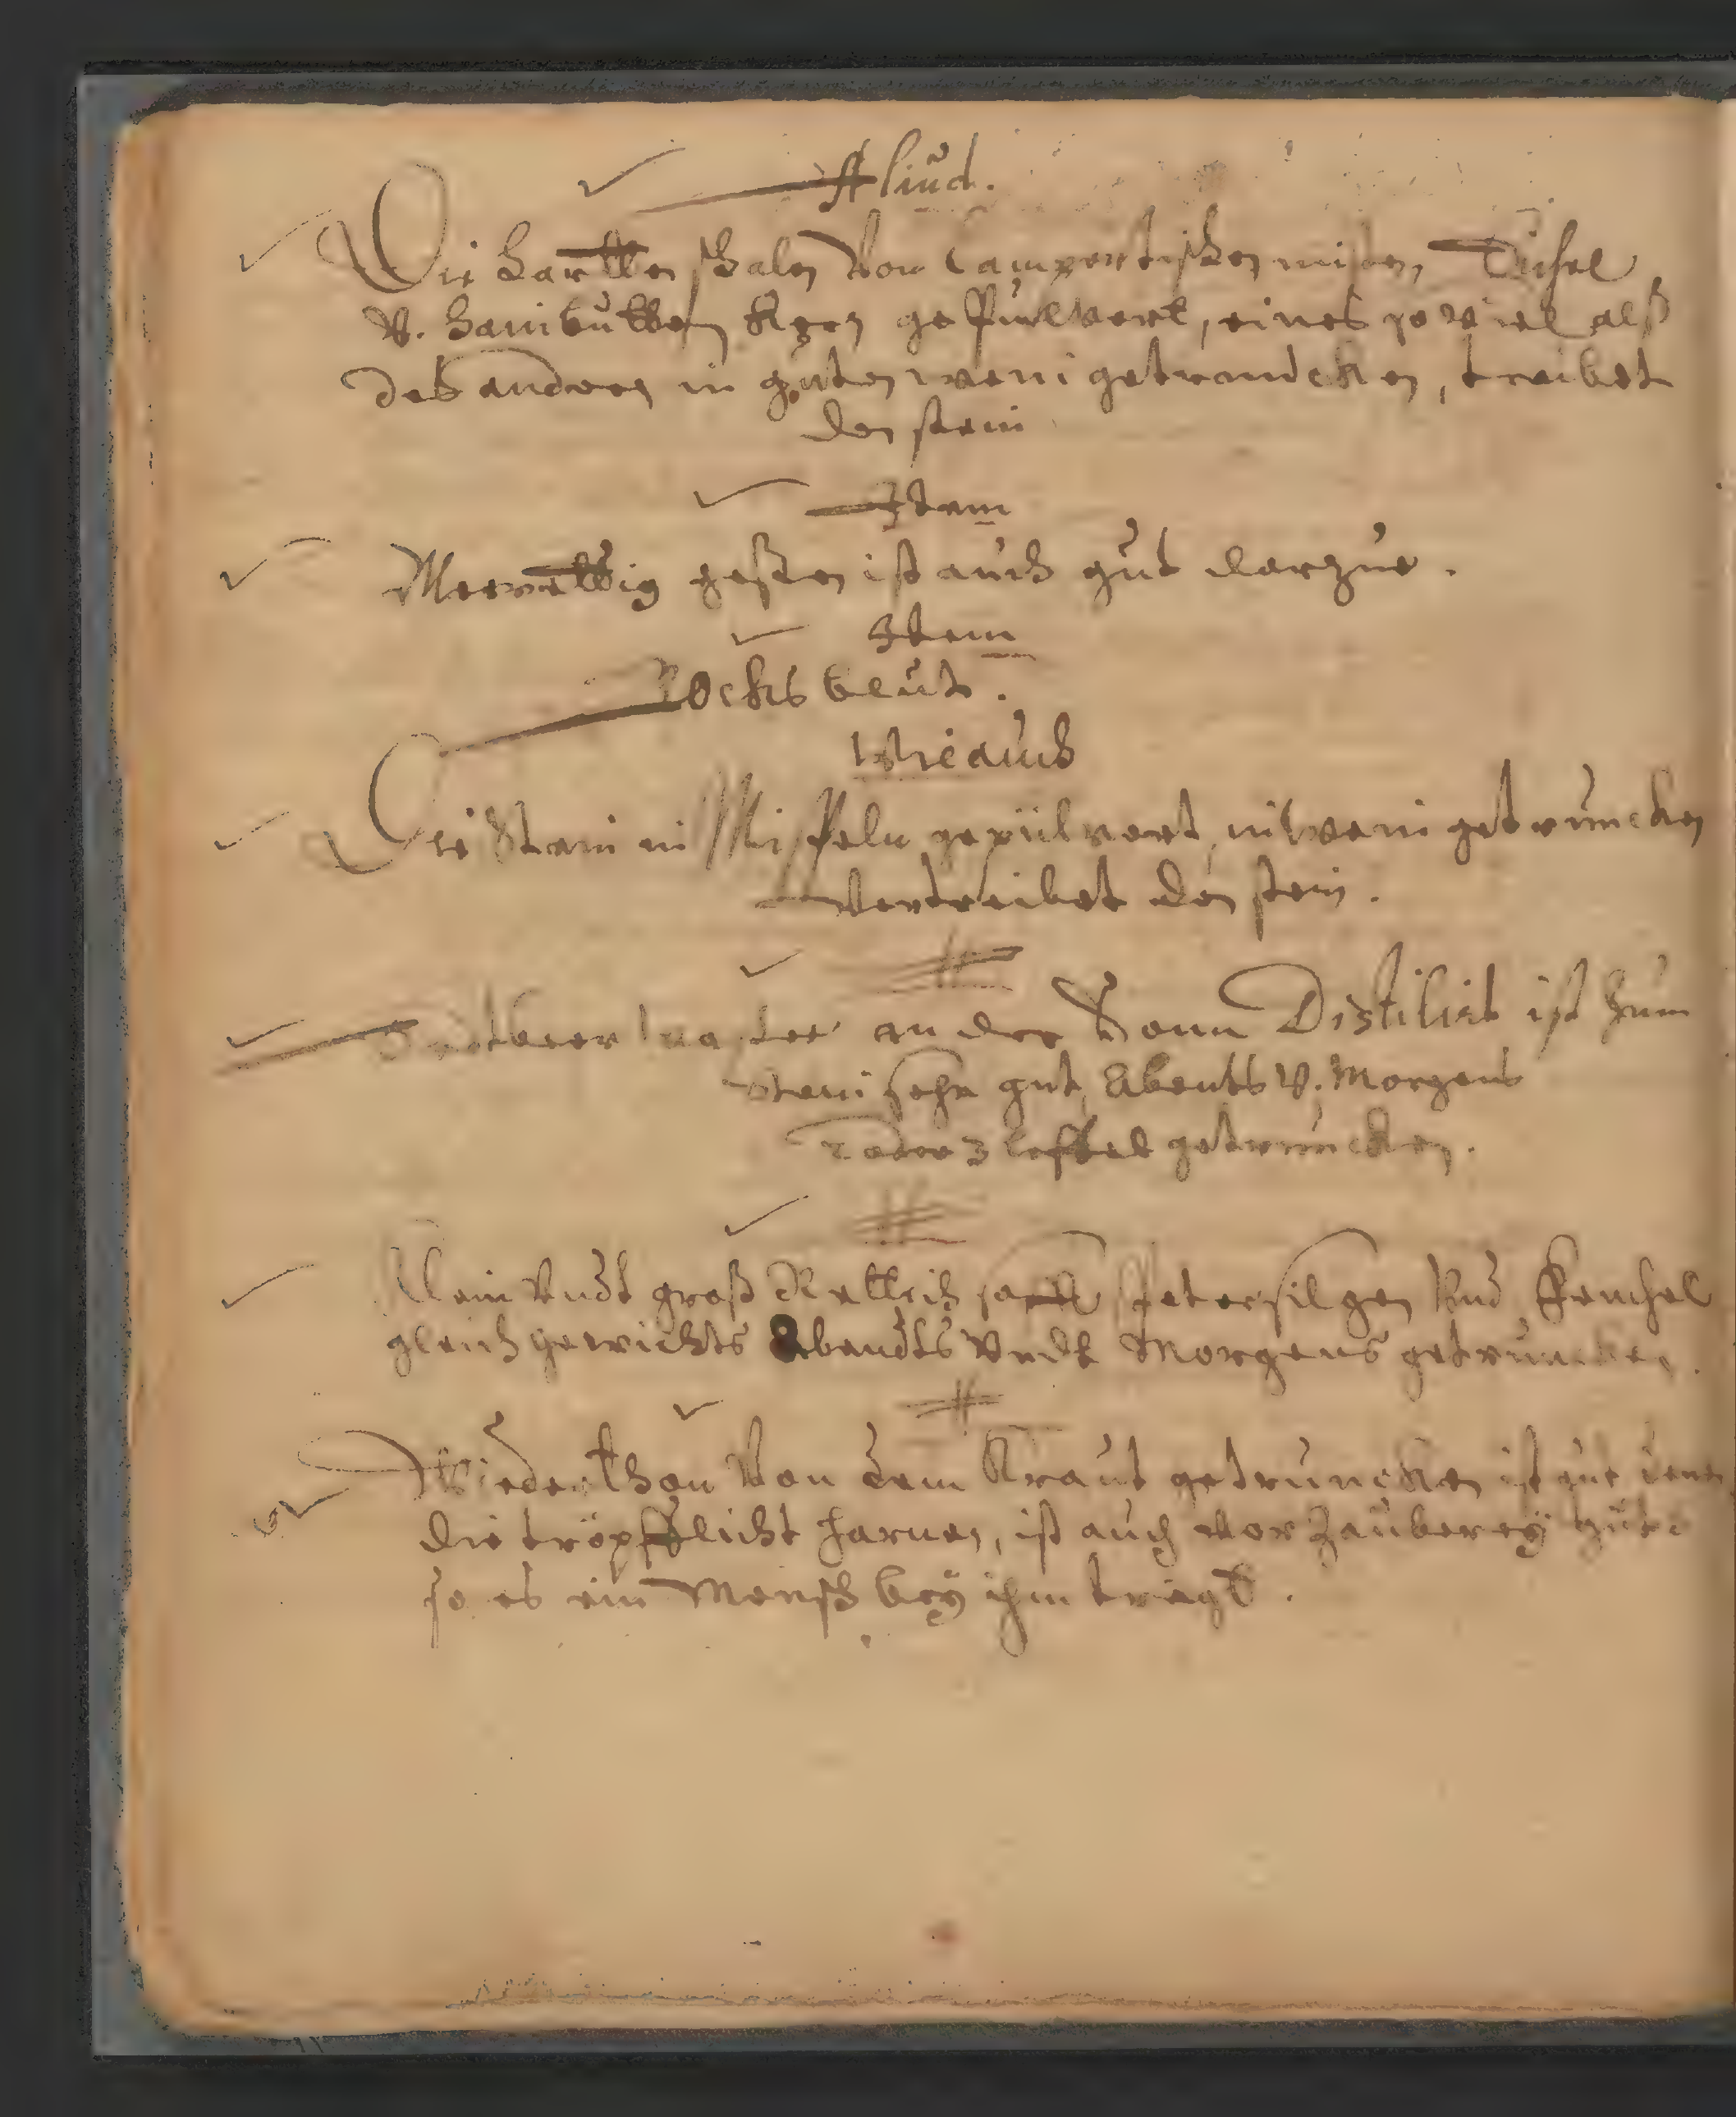 Aliud.
Die hartten schalen von Lampertischen nüsen, Düsel
V. hanibutten Kern gepulvert, eines so viel alß
des andern in guten wein getrandcken, treibet
den stein
Item
Meerrettig gessen ist auch gut darzue.
Item
Bocksblut.
Wie auch
Die Stein in Mispeln gepülvert, in wein getruncken
Vertreibet den stein.
#
Erdtbeer wasser an der Sonn Distilirt ist zum
Stein sehr gut, Abents V. Morgens
2 oder 3 leffel getruncken.
#
Klein Undt groß Rettich safft Petersilgen Und Fenchel
gleich gewichts Abendts Undt Morgens getruncken.
#
Wiederthon Von dem Kraut getruncken ist gut denen
die tröpfflicht harnen, ist auch vor Zauberey gut
so es ein Mensch bey ihm tregt.